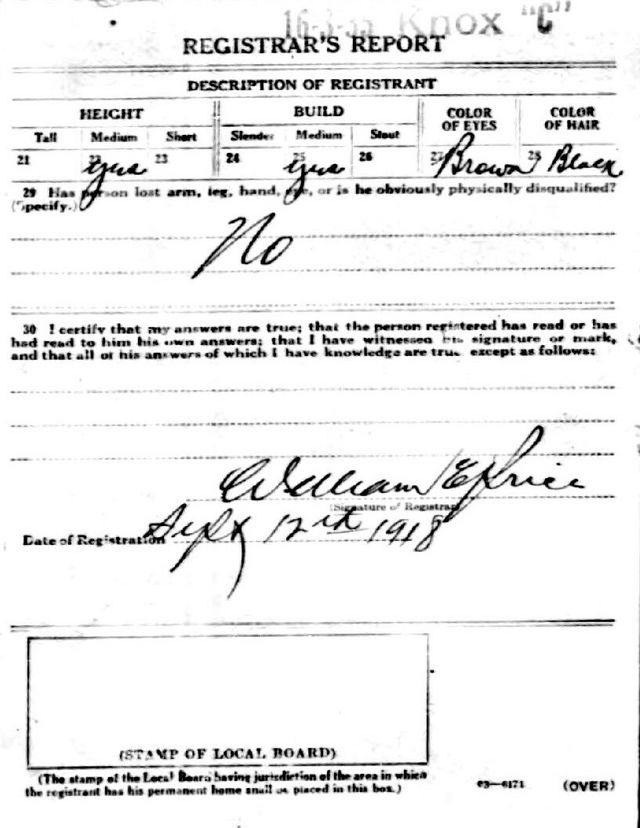 Knox "C"
REGISTRAR'S REPORT
DESCRIPTION OF REGISTRANT
HEIGHT BUILD COLOR OF EYES COLOR OF HAIR
Tall Medium Short Slender Medium Stout
21 22 yes 23 24 25 yes 26 27 Brown 28 Black
29 Has person lost arm, leg, hand, eye, or is he obviously physically disqualified?
(Specify.)
No
30 I certify that my answers are true; that the person registered has read or has
had read to him his own answers; that I have witnessed his signature or mark,
and that all of his answers of which I have knowledge are true, except as follows:
William E Price
(Signature of Registrar)
Date of Registration Sept 12th 1918
(STAMP OF LOCAL BOARD)
(The stamp of the Local Board having jurisdiction of the area in which
the registrant has his permanent home shall be placed in this box.)
03—6171 (OVER)